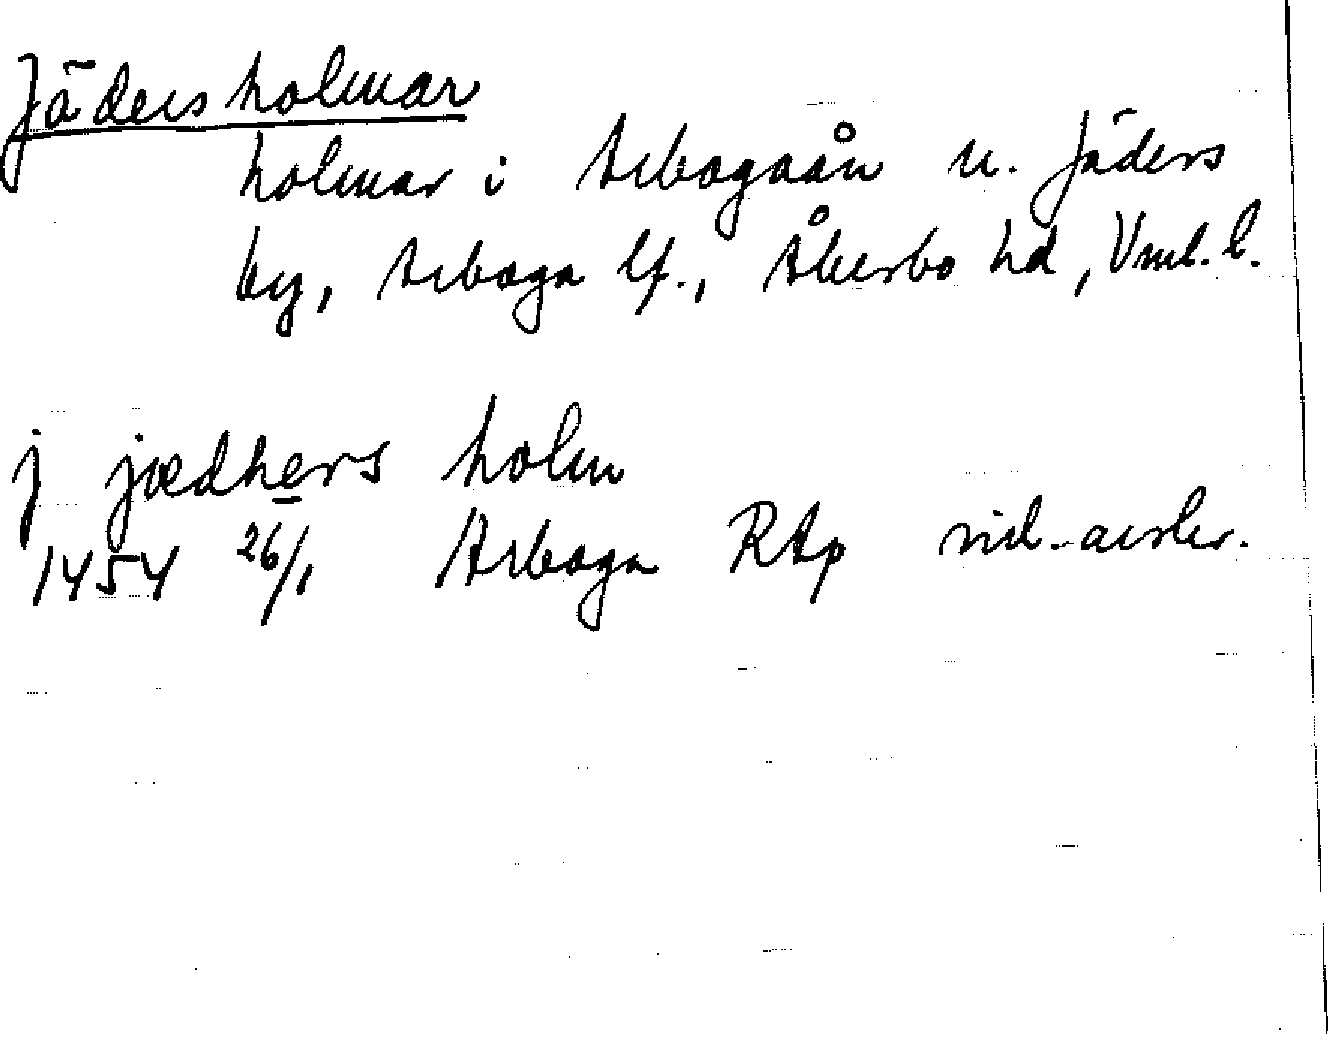 Jädersholmar
holmar i Arbogaån n. Jäders
by, Arboga lf., Åkerbo hd, Vml. l.
j jædhers holm
1454 26/1 Arboga RAp vid.-avskr.